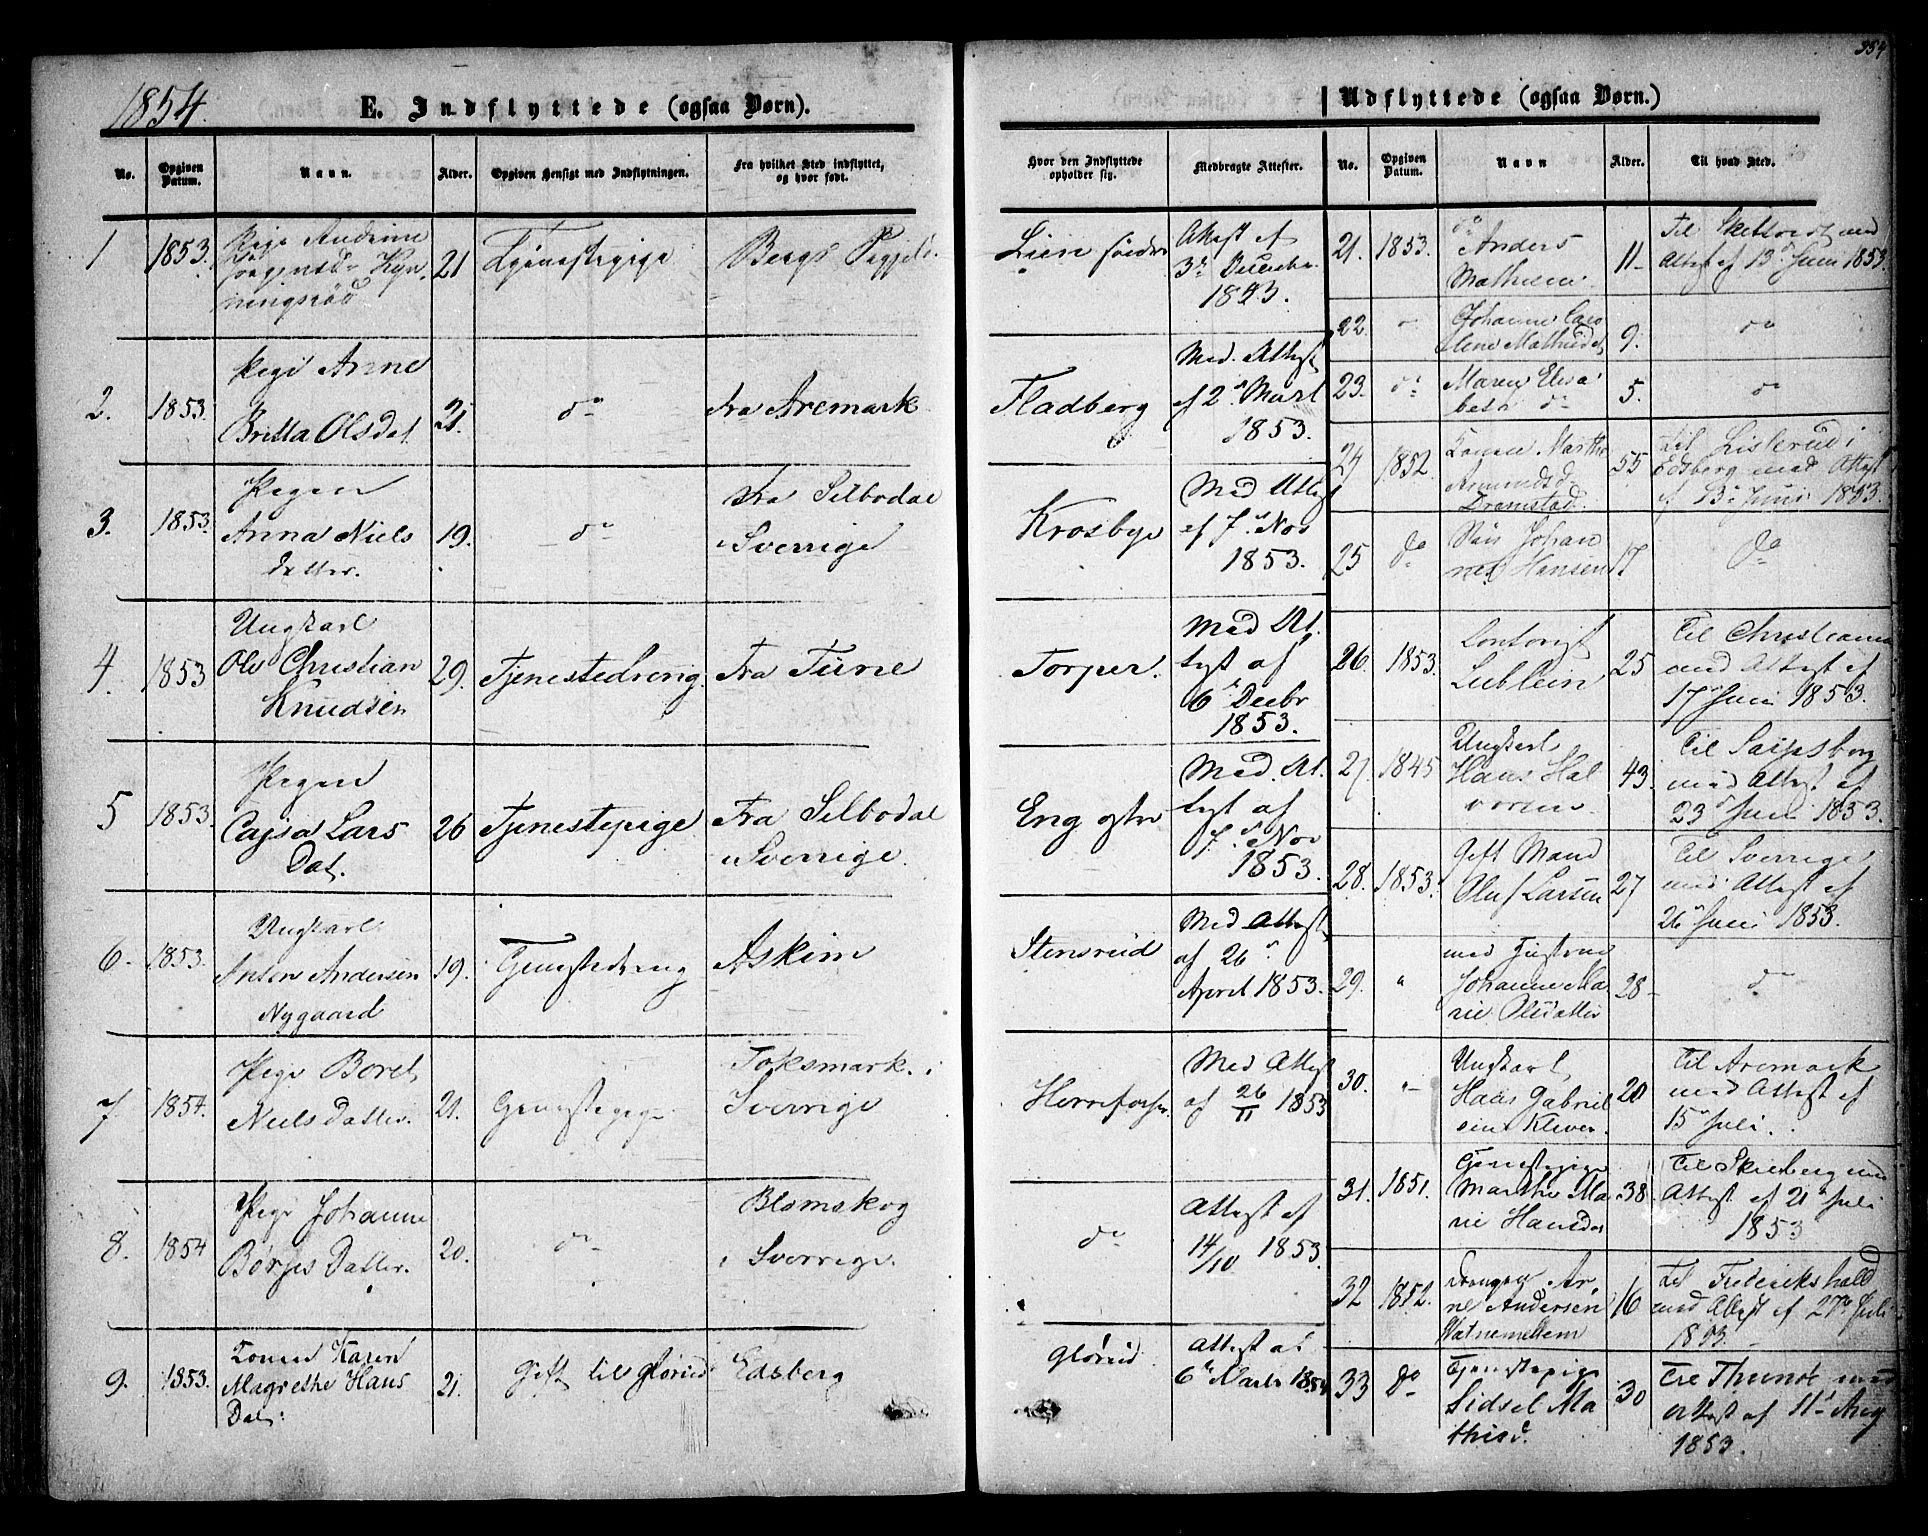 1854.
E. Indflyttede (ogsaa Børn).
No.
Opgiven Datum.
Navn.
Alder.
Opgiven Hensigt med Indflytningen.
Fra hvilket Sted indflyttet, og hvor født.
1
1853.
Pige Andrine
21
Berg
2.
1853.
Pige Anne
Britta Olsdat.
21.
do
fra Aremark
3.
1853
Pigen
Anna Niels
datter.
19.
do
fra Silbodal
i Sverrige
4.
1853
Ungkarl
Ole Christian
Knudsen
29.
Tjenestedreng.
Fra Tune
5
1853.
Pigen
Cajsa Lars
Dat.
26
Tjenestepige
Fra Silbodal
i Sverrige.
6.
1853.
Ungkarl
Anton Andersen
Nygaard
19.
Askim
7
1854.
Pige Boret
Niels Datter.
21.
i
Sverrige
8.
1854
Pige Johanne
Børjes Datter.
20.
do
Blomskog
i Sverrige.
9.
1853.
Konen Karen
Magrethe Hans
Dat:
21.
Gift til Glørud
Edsberg
354
Udflyttede (ogsaa Børn.)
Hvor den Indflyttede opholder sig.
Medbragte Attester.
No.
Opgiven Datum.
Navn
Alder.
Til hvad Sted.
Lien søndre
Attest af
3de December
Fladberg
Med. Attest
af 2 Marts
1853.
Krosbye
Med Attest
af 7de Nov
1853.
Torper.
Med At.
test af
6 Decbr
1853.
Eng østre
Med. At.
test af
7. Nov
1853.
Stensrud
Med Attest
af 26
April 1853.
Med Attest
af 26/11 1853
do
Attest af
14/10 1853.
Glørud.
Attest af
6te Marts 1854
21.
1853.
Anders
Mathisen
11
Attest af 13 Juni 1853.
22.
Johanne Caro
line Mathisdat
9.
do
23.
do
Maren Elisa
beth do
5.
do
24
1852
Konen Marthe
Amundsd
55
til Listerud i
Edsberg med Attest
af 13 Juni 1853.
25
do
Søn Johan
nes Hansen
17
do
26.
1853.
Lublein
25
Til Christiania
med Attest af
17 Juni 1853.
27
1845
Ungkarl
Hans Hal
vorsen
43.
Til Sarpsborg
med Attest af
23 Juni 1853.
28.
1853.
Gift Mand
Oluf Larsen
27
Til Sverrige
med Attest af
26 Juni 1853.
29.
"
med Hustrue
Johanne Ma
rie Olsdatter
28
do
30.
"
Ungkarl
Hans Gabriel
sen Kliver.
20
Til Aremark
med Attest af
15 Juli.
31.
1851.
Tjenestepige
Marthe Ma
rie Hansdat
38.
Til Skieberg med
Attest af 21 Juli
1853
32
1852.
Ar
ne Andersen
16
til Frederikshald
med Attest af 27de Juli
1853.
33
do
Tjenestepige
Sidsel Ma
thisd.
30
med
Attest af 11 Aug
1853.